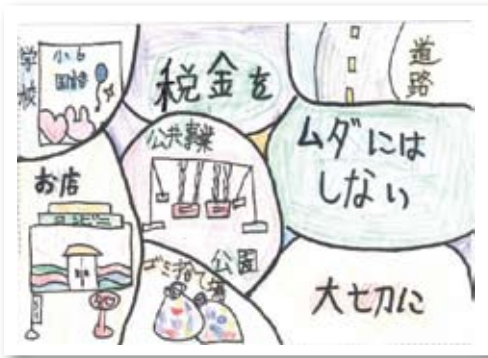 学校
小6
国語
税金を
道路
公共事業
ムダには
しない
お店
公園
ゴミ捨て場
大切に